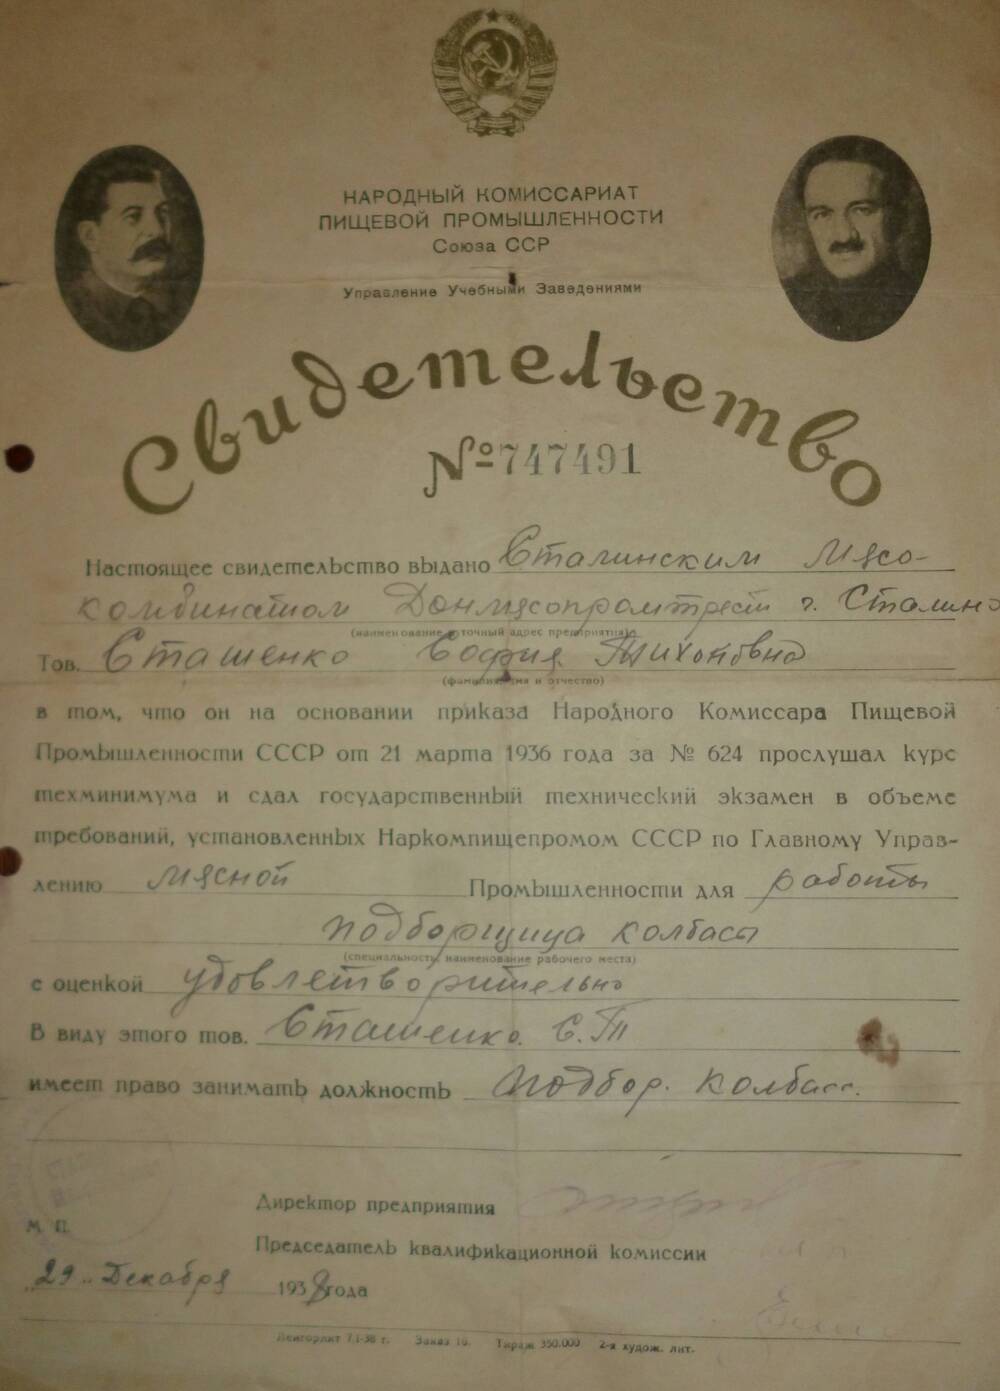 НАРОДНЫЙ КОМИССАРИАТ
ПИЩЕВОЙ ПРОМЫШЛЕННОСТИ
Союза ССР
Управление Учебными Заведениями
Свидетельство
№ 747491
Настоящее свидетельство выдано Сталинским Мясо-
комбинатом Донмясопромтрест г. Сталино
(наименование и точный адрес предприятия)
Тов. Сташенко София Тихоновна
(фамилия, имя и отчество)
в том, что он на основании приказа Народного Комиссара Пищевой
Промышленности СССР от 21 марта 1936 года за № 624 прослушал курс
техминимума и сдал государственный технический экзамен в объеме
требований, установленных Наркомпищепромом СССР по Главному Управ-
лению Мясной Промышленности для работы
подборщица колбасы
(специальность, наименование рабочего места)
с оценкой удовлетворительно
В виду этого тов. Сташенко С.Т
имеет право занимать должность подбор. колбасс.
Директор предприятия
М. П.
Председатель квалификационной комиссии
29 Декабря 1938 года
Ленгорлит 7.1-38 г. Заказ 16. Тираж 350.000 2-я худож. лит.